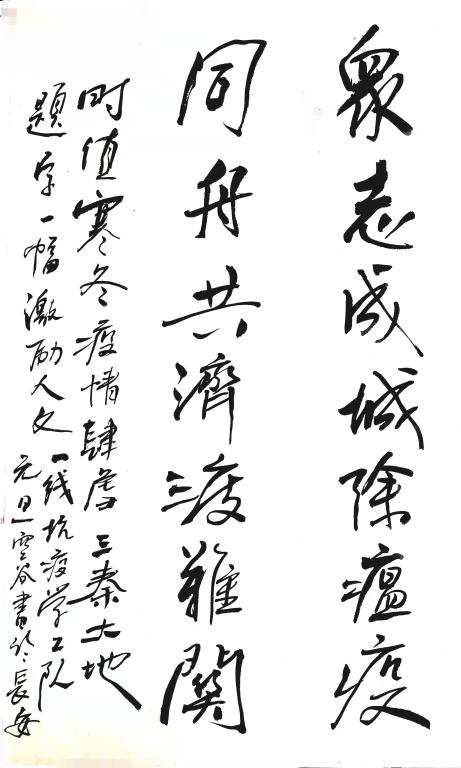 眾志成城除瘟疫
同舟共濟渡難關
时值寒冬疫情肆虐三秦大地
题字一幅激励人文一线抗疫学工队
元旦空谷書於長安